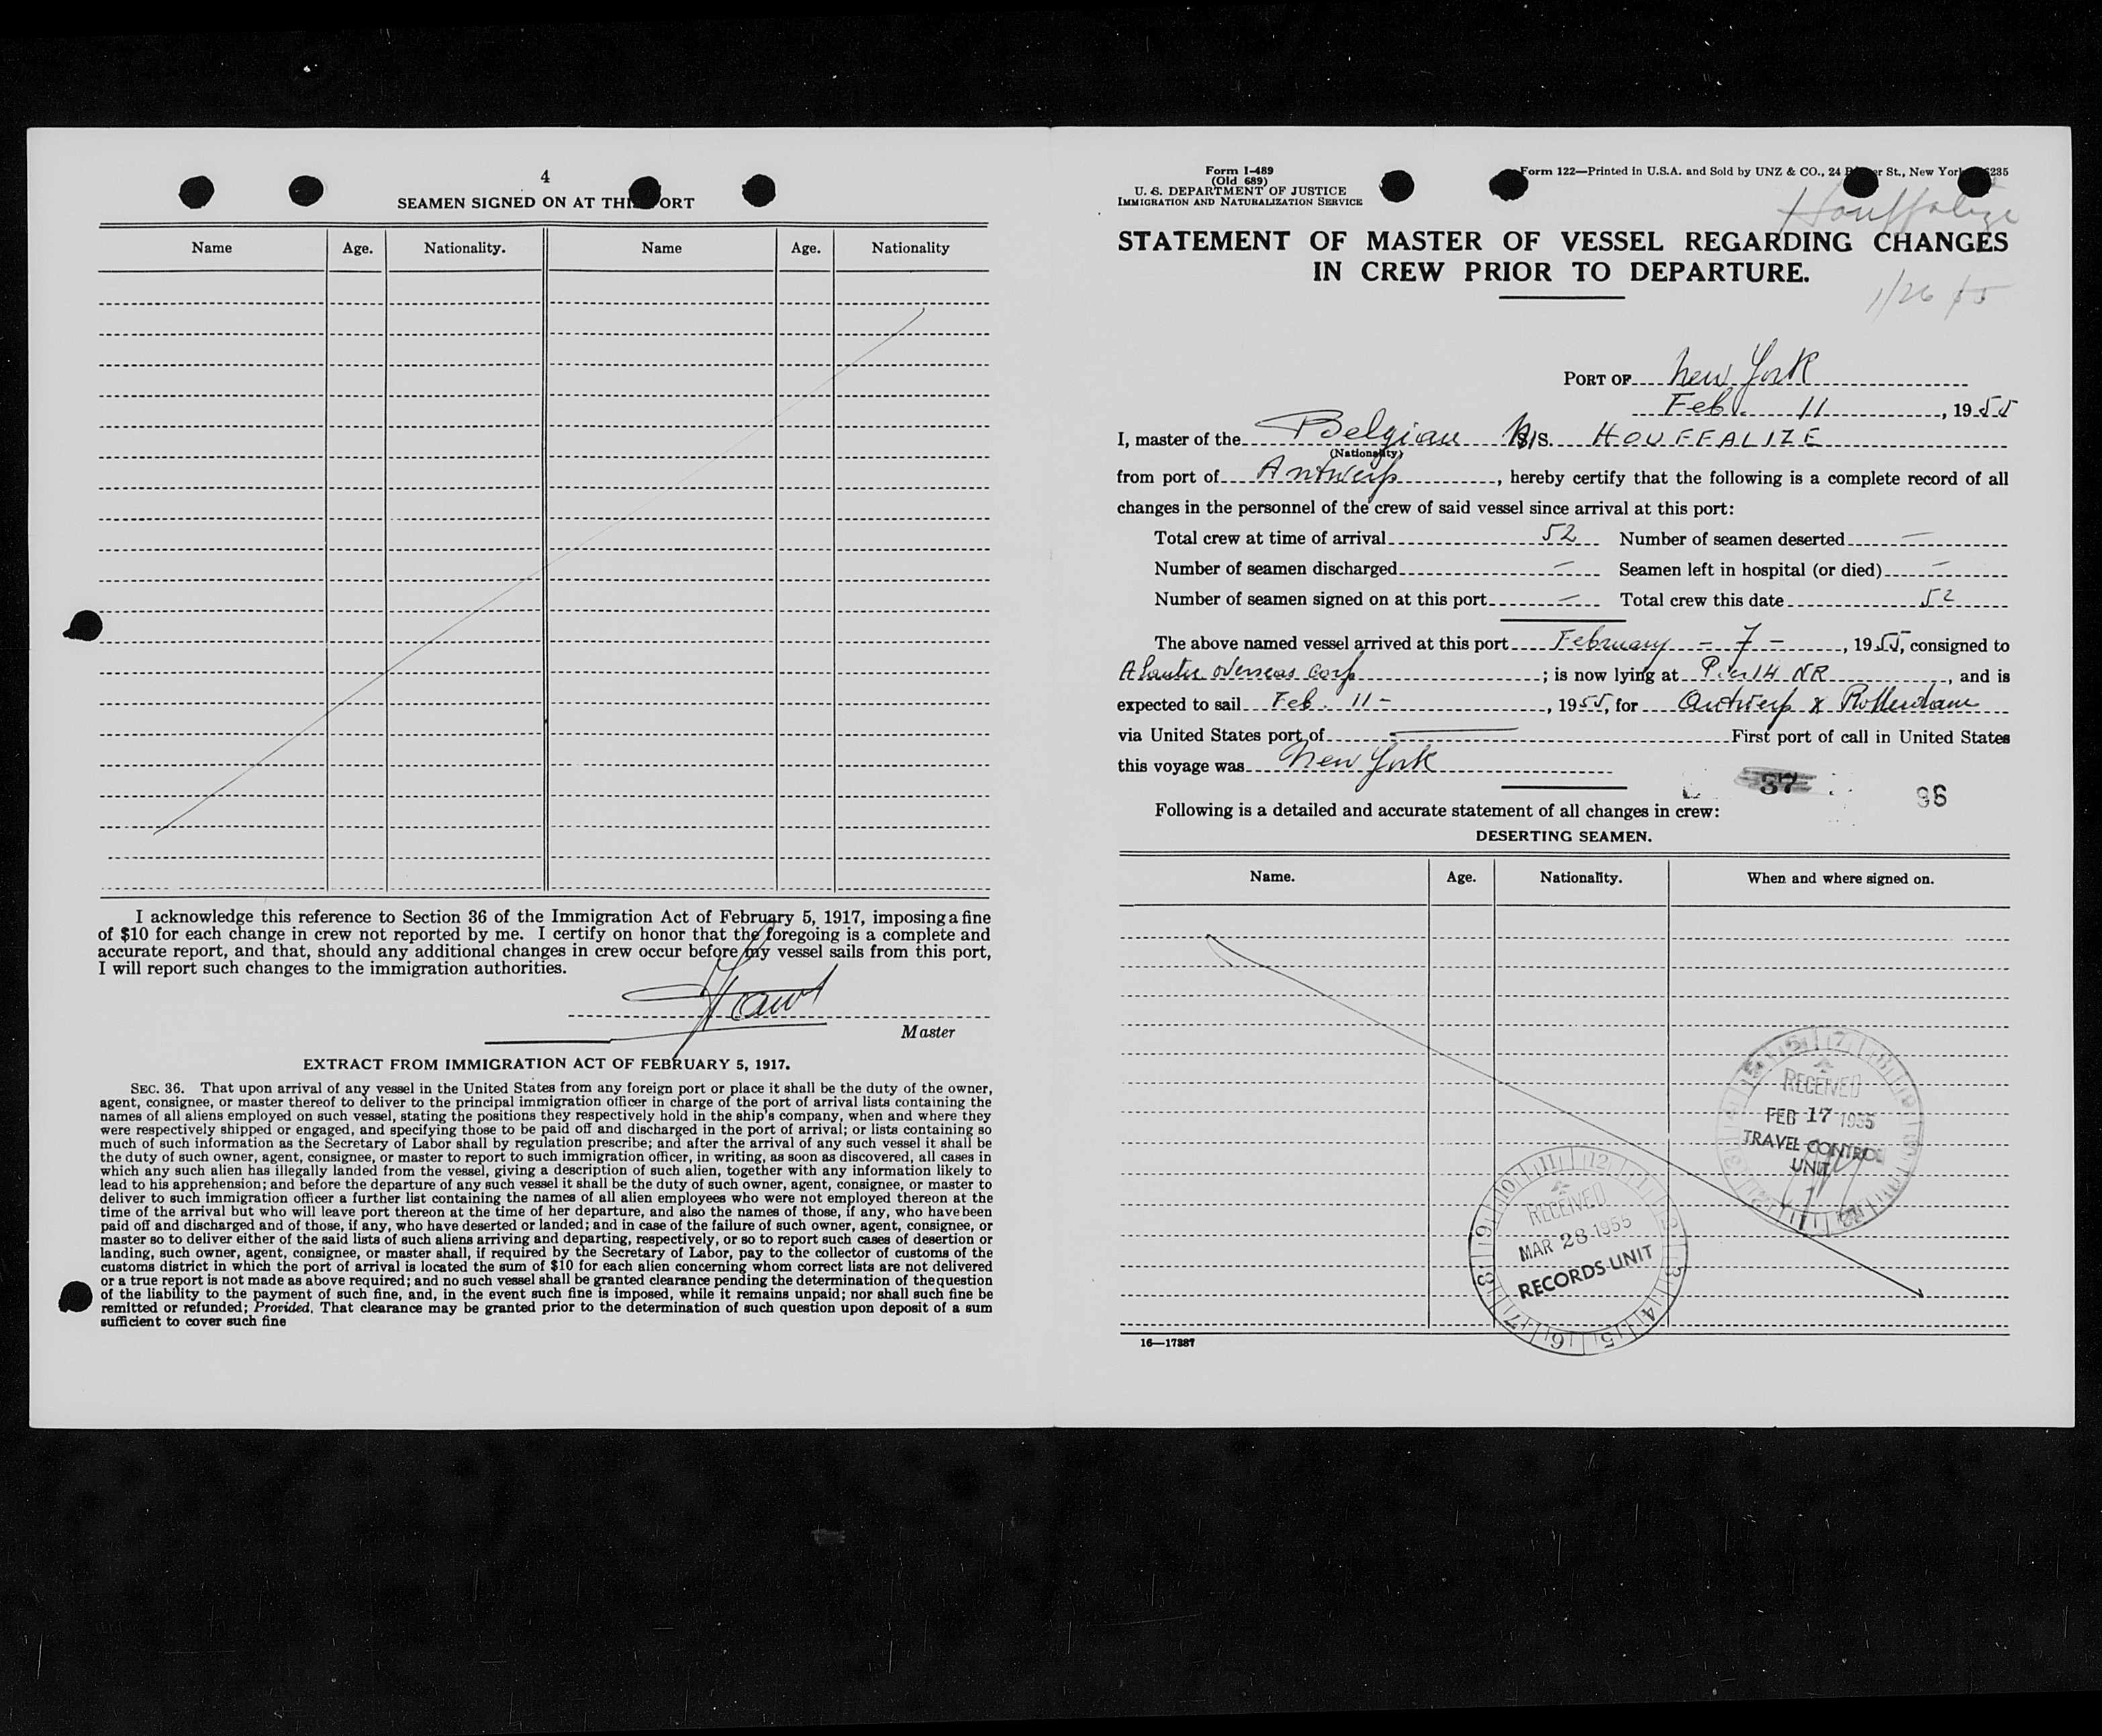 4
SEAMEN SIGNED ON AT THIS PORT
Name Age. Nationality. Name Age. Nationality
I acknowledge this reference to Section 36 of the Immigration Act of February 5, 1917, imposing a fine
of $10 for each change in crew not reported by me. I certify on honor that the foregoing is a complete and
accurate report, and that, should any additional changes in crew occur before my vessel sails from this port,
I will report such changes to the immigration authorities.
Master
EXTRACT FROM IMMIGRATION ACT OF FEBRUARY 5, 1917.
SEC. 36. That upon arrival of any vessel in the United States from any foreign port or place it shall be the duty of the owner,
agent, consignee, or master thereof to deliver to the principal immigration officer in charge of the port of arrival lists containing the
names of all aliens employed on such vessel, stating the positions they respectively hold in the ship's company, when and where they
were respectively shipped or engaged, and specifying those to be paid off and discharged in the port of arrival; or lists containing so
much of such information as the Secretary of Labor shall by regulation prescribe; and after the arrival of any such vessel it shall be
the duty of such owner, agent, consignee, or master to report to such immigration officer, in writing, as soon as discovered, all cases in
which any such alien has illegally landed from the vessel, giving a description of such alien, together with any information likely to
lead to his apprehension; and before the departure of any such vessel it shall be the duty of such owner, agent, consignee, or master to
deliver to such immigration officer a further list containing the names of all alien employees who were not employed thereon at the
time of the arrival but who will leave port thereon at the time of her departure, and also the names of those, if any, who have been
paid off and discharged and of those, if any, who have deserted or landed; and in case of the failure of such owner, agent, consignee, or
master so to deliver either of the said lists of such aliens arriving and departing, respectively, or so to report such cases of desertion or
landing, such owner, agent, consignee, or master shall, if required by the Secretary of Labor, pay to the collector of customs of the
customs district in which the port of arrival is located the sum of $10 for each alien concerning whom correct lists are not delivered
or a true report is not made as above required; and no such vessel shall be granted clearance pending the determination of the question
of the liability to the payment of such fine, and, in the event such fine is imposed, while it remains unpaid; nor shall such fine be
remitted or refunded; Provided, That clearance may be granted prior to the determination of such question upon deposit of a sum
sufficient to cover such fine
Form I-489
(Old 689)
U. S. DEPARTMENT OF JUSTICE
IMMIGRATION AND NATURALIZATION SERVICE
Form 122—Printed in U.S.A. and Sold by UNZ & CO., 24 St., New York
Houffalize
STATEMENT OF MASTER OF VESSEL REGARDING CHANGES
IN CREW PRIOR TO DEPARTURE.
1/26 55
PORT OF New York
Feb. 11, 1955
I, master of the Belgian M/S. HOUFFALIZE
(Nationality)
from port of Antwerp, hereby certify that the following is a complete record of all
changes in the personnel of the crew of said vessel since arrival at this port:
Total crew at time of arrival 52 Number of seamen deserted —
Number of seamen discharged — Seamen left in hospital (or died) —
Number of seamen signed on at this port — Total crew this date 52
The above named vessel arrived at this port February - 7 -, 1955, consigned to
overseas corp; is now lying at Pier 14 NR, and is
expected to sail Feb. 11 -, 1955, for Antwerp & Rotterdam
via United States port of — First port of call in United States
this voyage was New York
37 96
Following is a detailed and accurate statement of all changes in crew:
DESERTING SEAMEN.
Name. Age. Nationality. When and where signed on.
RECEIVED
FEB 17 1955
TRAVEL CONTROL
UNIT
RECEIVED
MAR 28 1955
RECORDS UNIT
16—17387